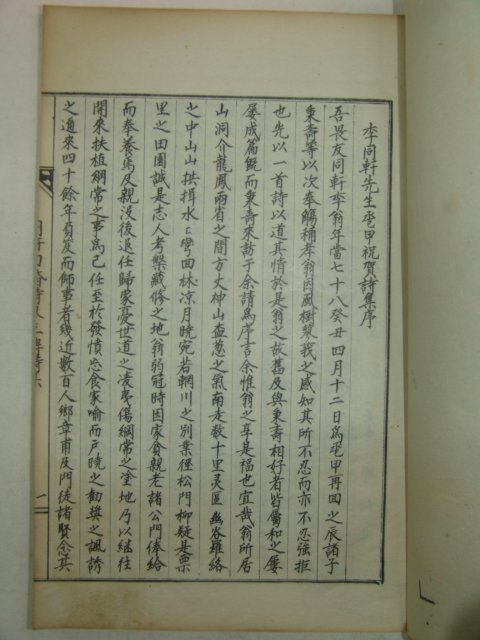 李同軒先生耄甲祝賀詩集序
吾畏友同軒李翁年當七十八癸丑四月十二日爲耄甲再回之辰諸子
秉壽等以次奉觴稱孝翁因風樹蓼莪之感如其所不忍而亦不忍強拒
也先以一首詩以道其情於是翁之故舊及與秉壽相好者皆屬和之屡
屡成篇旣而秉壽來訪于余請爲序言余惟翁之享是福也宜哉翁所居
山洞介龍鳳兩省之間方丈神山蓝葱之氣南走数十里灵區幽谷羅絡
之中山山拱揖水水彎回林凉月曉宛若輞川之別業徑松門柳疑是栗
里之田園誠是志人考槃藏修之地翁弱冠時因家貧親老諸公門俸給
而奉養焉及親没後退任歸家憂世道之凌夷傷綱常之塗地乃以継往
開來扶植綱常之事爲己任至於發憤忘食家喻而戶曉之勧獎之諷誘
之迩來四十餘年負笈而師事者幾近數百人鄉章甫及門徒諸賢念其
一